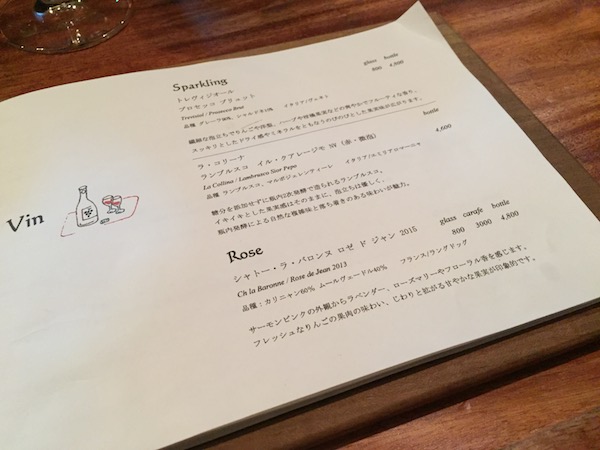 Vin
Sparkling
glass bottle
トレヴィジオール
800 4,500
プロセッコ ブリュット
Trevisiol / Prosecco Brut
品種 グレーラ90%、シャルドネ10% イタリア/ヴェネト
繊細な泡立ちでりんごや洋梨、ハーブや柑橘果実などの爽やかでフルーティな香り。
スッキリとしたドライ感やミネラルをともなうのびのびとした果実味が広がります。
bottle
ラ・コリーナ
4,600
ランブルスコ イル・クアレージモ NV (赤・微泡)
La Collina / Lambrusco Sior Pepo
品種 ランブルスコ、マルボジェンティーレ イタリア/エミリアロマーニャ
糖分を添加せずに瓶内2次発酵で造られるランブルスコ。
イキイキとした果実感はそのままに、泡立ちは優しく、
瓶内発酵による自然な複雑味と落ち着きのある味わいが魅力。
Rose
glass carafe bottle
シャトー・ラ・バロンヌ ロゼ ド ジャン 2015
800 3000 4,800
Ch la Baronne / Rose de Jean 2013
品種：カリニャン60% ムールヴェードル40% フランス/ラングドッグ
サーモンピンクの外観からラベンダー、ローズマリーやフローラル香を感じます。
フレッシュなりんごの果肉の味わい、じわりと拡がる甘やかな果実が印象的です。